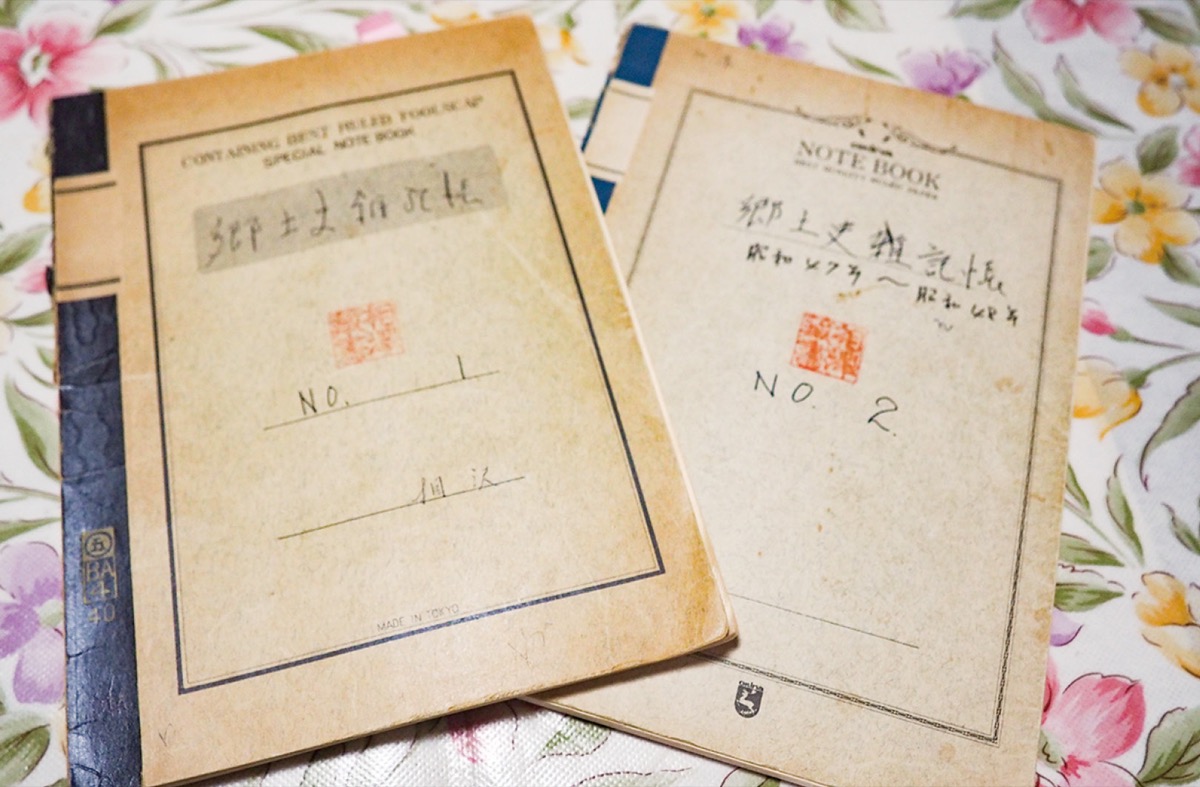 CONTAINING BEST RULED FOOLSCAP
SPECIAL NOTE BOOK
郷土史雑記帳
NO. 1
MADE IN TOKYO
五
BA
4
40
NOTE BOOK
郷土史雑記帳
昭和47年〜昭和48年
NO. 2.